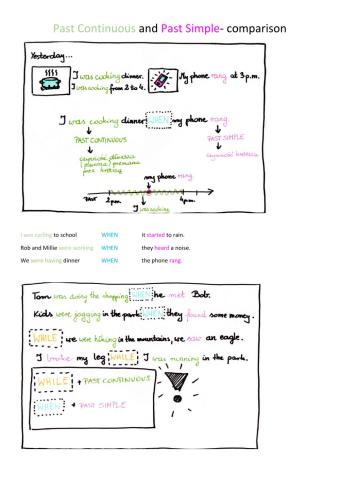 Past Continuous and Past Simple- comparison
Yesterday...
I was cooking dinner. My phone rang at 3 p.m.
I was cooking from 2 to 4.
I was cooking dinner WHEN my phone rang.
PAST CONTINUOUS PAST SIMPLE
my phone rang.
PAST 2pm. 4pm.
I was cooking
to school WHEN It started to rain.
Rob and Millie were working WHEN they heard a noise.
We were having dinner WHEN the phone rang.
Tom was doing the shopping WHEN he met Bob.
Kids were jogging in the park WHEN they found some money.
WHILE we were hiking in the mountains, we saw an eagle.
I broke my leg WHILE I was running in the park.
WHILE + PAST CONTINUOUS
WHEN + PAST SIMPLE